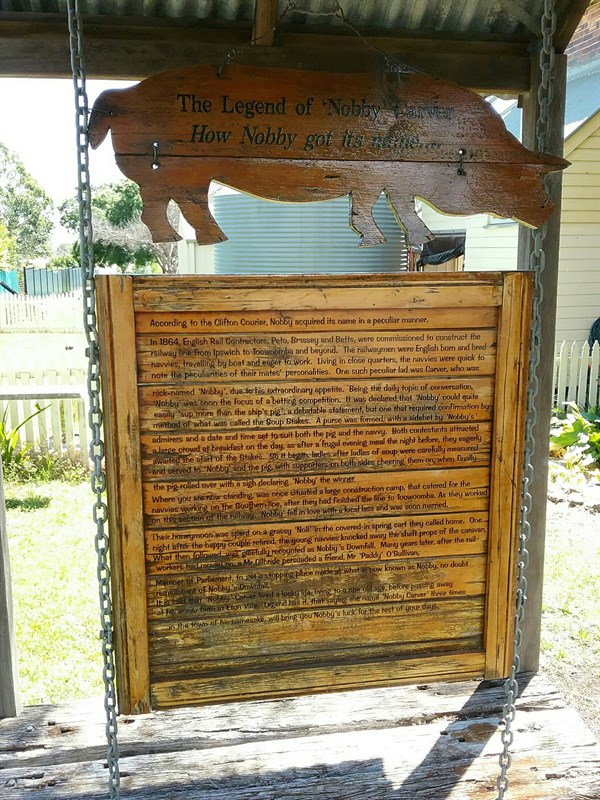 The Legend of 'Nobby' Carver
How Nobby got its name....
According to the Clifton Courier, Nobby acquired its name in a peculiar manner.
In 1864, English Rail Contractors, Peto, Brassey and Betts, were commissioned to construct the
railway line from Ipswich to Toowoomba and beyond. The railwaymen were English born and bred
navvies, travelling by boat and eager to work. Living in close quarters, the navvies were quick to
note the peculiarities of their mates' personalities. One such peculiar lad was Carver, who was
nick-named 'Nobby', due to his extraordinary appetite. Being the daily topic of conversation,
'Nobby' was soon the focus of a betting competition. It was declared that 'Nobby' could quite
easily "sup more than the ship's pig", a debatable statement, but one that required confirmation by
method of what was called the Soup Stakes. A purse was formed, with a sidebet by 'Nobby's
admirers and a date and time set to suit both the pig and the navvy. Both contestants attracted
a large crowd at breakfast on the day, as after a frugal evening meal the night before, they eagerly
awaited the start of the Stakes. So it began, ladles after ladles of soup were carefully measured
and served to 'Nobby' and the pig, with supporters on both sides cheering them on, when finally
the pig rolled over with a sigh declaring 'Nobby' the winner.
Where you are now standing, was once situated a large construction camp, that catered for the
navvies working on the Southern line, after they had finished the line to Toowoomba. As they worked
on this section of the railway, 'Nobby' fell in love with a local lass and was soon married.
Their honeymoon was spent on a grassy "Noll" in the covered-in spring cart they called home. One
night after the happy couple retired, the young navvies knocked away the shaft props of the caravan.
What then followed was gleefully recounted as Nobby's Downfall. Many years later, after the rail
workers had moved on, a Mr Gilbride persuaded a friend, Mr 'Paddy' O'Sullivan,
Minister of Parliament, to get a stopping place made at what is now known as Nobby, no doubt
reminiscent of Nobby's Downfall.
It is said that 'Nobby' Carver lived a lucky life, living to a ripe old age, before passing away
at his wife's farm at Eton Vale. Legend has it, that saying the name 'Nobby Carver' three times
in the town of his namesake, will bring you Nobby's luck for the rest of your days.